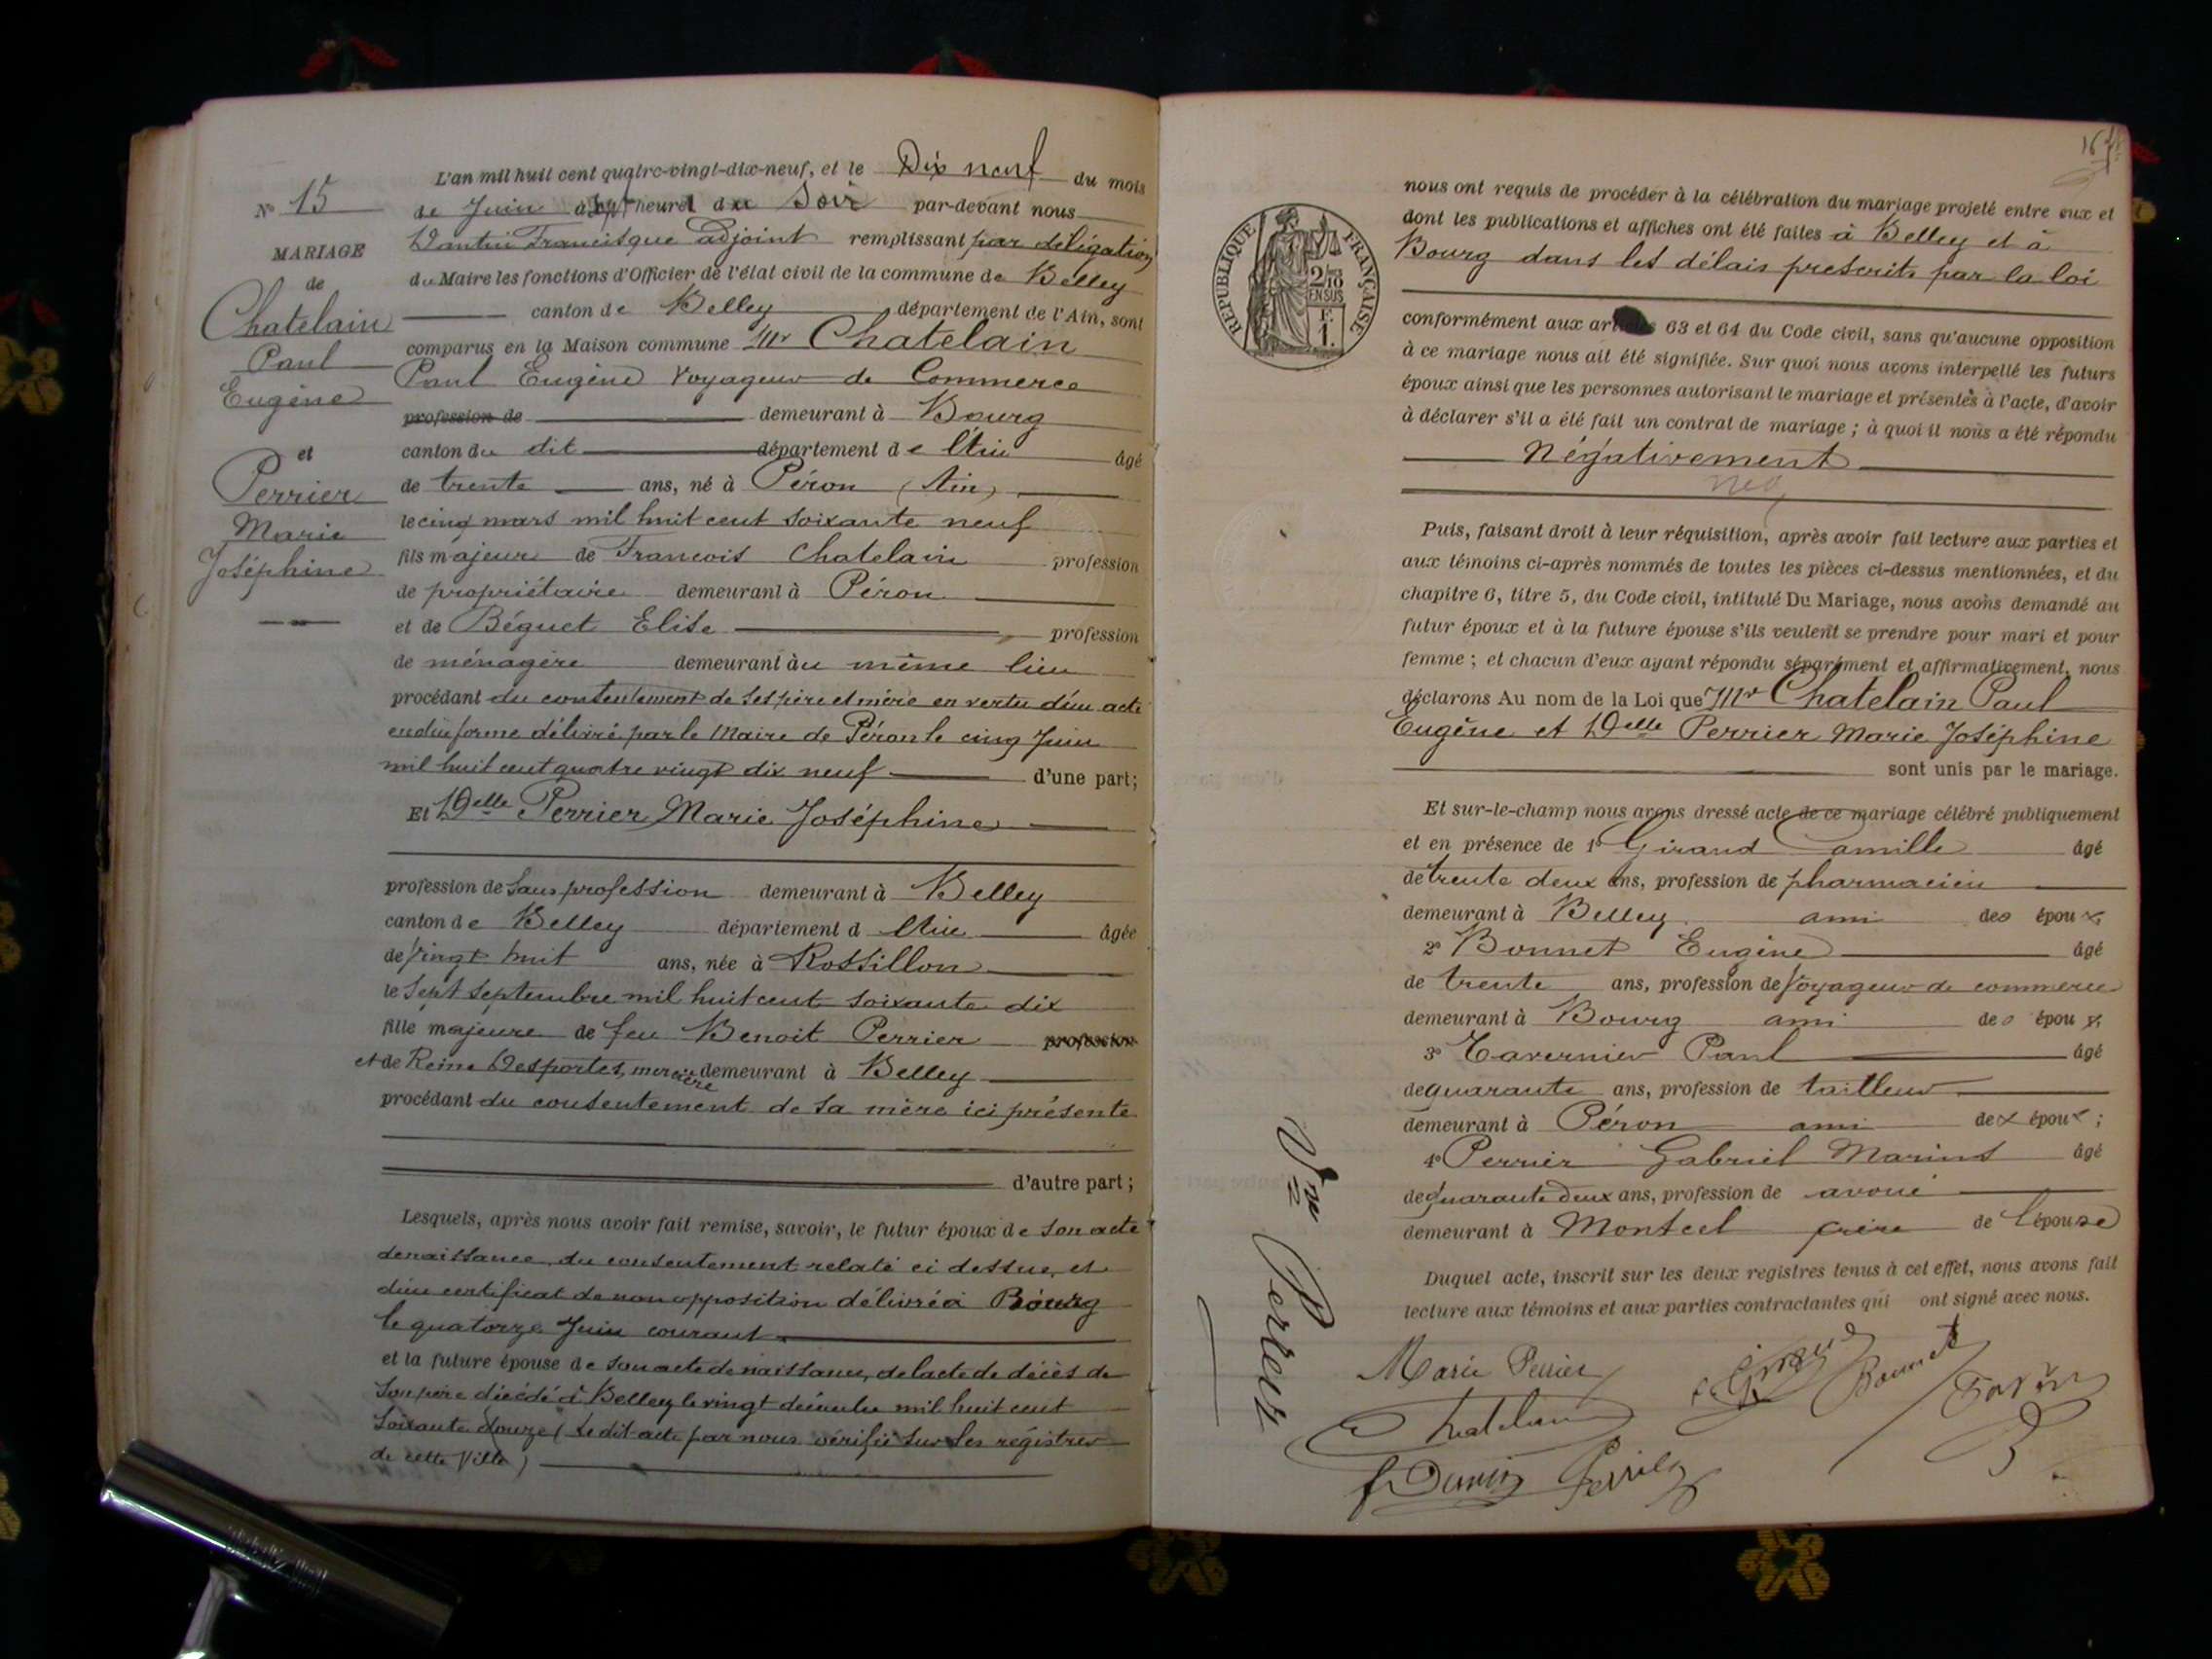 N° 15
MARIAGE
de
Chatelain
Paul
Eugène
et
Perrier
Marie
Joséphine
L'an mil huit cent quatre-vingt-dix-neuf, et le Dix neuf du mois
de Juin à heures du Soir par-devant nous
Francisque adjoint remplissant par délégation
du Maire les fonctions d'Officier de l'état civil de la commune de Belley
canton de Belley département de l'Ain, sont
comparus en la Maison commune Mr Chatelain
Paul Eugène Voyageur de Commerce
profession de demeurant à Bourg
canton du dit département de l'Ain âgé
de trente ans, né à Péron (Ain)
le cinq mars mil huit cent soixante neuf
fils majeur de Francois Chatelain profession
de propriétaire demeurant à Péron
et de Béguet Elise profession
de ménagère demeurant au même lieu
procédant du consentement de ses père et mère en vertu d'un acte
en due forme délivré par le Maire de Péron le cinq Juin
mil huit cent quatre vingt dix neuf d'une part;
Et Delle Perrier Marie Joséphine
profession de Sans profession demeurant à Belley
canton de Belley département d l'Ain âgée
de Vingt huit ans, née à Rossillon
le Sept Septembre mil huit cent soixante dix
fille majeure de feu Benoit Perrier profession
et de Reine Desportes, mercière demeurant à Belley
procédant du consentement de sa mère ici présente
d'autre part;
Lesquels, après nous avoir fait remise, savoir, le futur époux de son acte
de naissance, du consentement relaté ci dessus, et
d'un certificat de non opposition délivré à Bourg
le quatorze Juin courant
et la future épouse de son acte de naissance, de l'acte de décès de
son père décédé à Belley le vingt décembre mil huit cent
soixante douze (le dit acte par nous vérifié sur les régistres
de cette Ville)
nous ont requis de procéder à la célébration du mariage projeté entre eux et
dont les publications et affiches ont été faites à Belley et à
Bourg dans les délais prescrits par la loi
RÉPUBLIQUE FRANÇAISE
2/10
EN SUS
F.
1.
conformément aux articles 63 et 64 du Code civil, sans qu'aucune opposition
à ce mariage nous ait été signifiée. Sur quoi nous avons interpellé les futurs
époux ainsi que les personnes autorisant le mariage et présentes à l'acte, d'avoir
à déclarer s'il a été fait un contrat de mariage ; à quoi il nous a été répondu
Négativement
neg
Puis, faisant droit à leur réquisition, après avoir fait lecture aux parties et
aux témoins ci-après nommés de toutes les pièces ci-dessus mentionnées, et du
chapitre 6, titre 5, du Code civil, intitulé Du Mariage, nous avons demandé au
futur époux et à la future épouse s'ils veulent se prendre pour mari et pour
femme ; et chacun d'eux ayant répondu séparément et affirmativement, nous
déclarons Au nom de la Loi que Mr Chatelain Paul
Eugène et Delle Perrier Marie Joséphine
sont unis par le mariage.
Et sur-le-champ nous avons dressé acte de ce mariage célébré publiquement
et en présence de 1° Giraud Camille âgé
de trente deux ans, profession de pharmacien
demeurant à Belley ami des époux,
2° Bonnet Eugène âgé
de trente ans, profession de Voyageur de commerce
demeurant à Bourg ami des époux,
3° Tavernier Paul âgé
de quarante ans, profession de tailleur
demeurant à Péron ami des époux ;
4° Perrier Gabriel Marius âgé
de quarante deux ans, profession de avoué
demeurant à frère de l'épouse
Duquel acte, inscrit sur les deux registres tenus à cet effet, nous avons fait
lecture aux témoins et aux parties contractantes qui ont signé avec nous.
Marie Perrier
Giraud
Bonnet
Chatelain
Vve Perrier